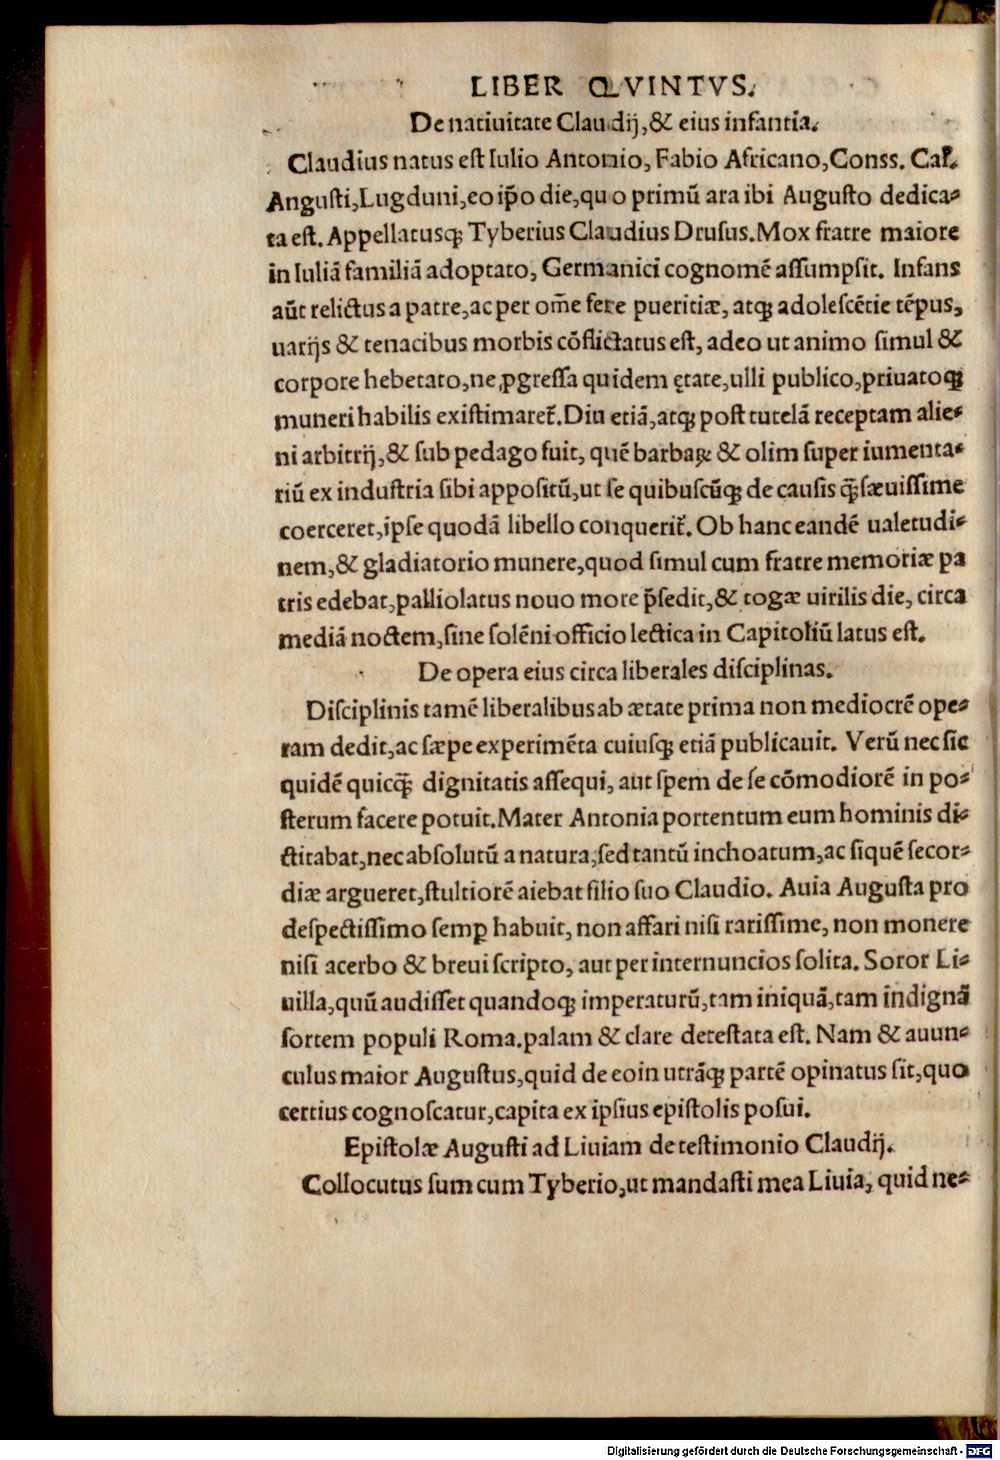 LIBER QVINTVS.
De natiuitate Claudĳ, & eius infantia.
Claudius natus est Iulio Antonio, Fabio Africano, Conss. Cal.
Angusti, Lugduni, eo ip̄o die, quo primū ara ibi Augusto dedica-
ta est. Appellatusq; Tyberius Claudius Drusus. Mox fratre maiore
in Iuliā familiā adoptato, Germanici cognomē assumpsit. Infans
aūt relictus a patre, ac per om̄e fere pueritiæ, atq; adolescētie tēpus,
uarĳs & tenacibus morbis cōflictatus est, adeo ut animo simul &
corpore hebetato, ne ꝓgressa quidem ętate, ulli publico, priuatoq;
muneri habilis existimaret᷑. Diu etiā, atq; post tutelā receptam alie-
ni arbitrĳ, & sub pedago fuit, quē barbaꝝ & olim super iumenta-
riū ex industria sibi appositū, ut se quibuscūq; de causis q̄ sæuissime
coerceret, ipse quodā libello conquerit᷑. Ob hanc eandē ualetudi-
nem, & gladiatorio munere, quod simul cum fratre memoriæ pa
tris edebat, palliolatus nouo more p̄sedit, & togæ uirilis die, circa
mediā noctem, sine solēni officio lectica in Capitoliū latus est.
De opera eius circa liberales disciplinas.
Disciplinis tamē liberalibus ab ætate prima non mediocrē ope-
ram dedit, ac sæpe experimēta cuiusq; etiā publicauit. Verū nec sic
quidē quicq̄ dignitatis assequi, aut spem de se cōmodiorē in po-
sterum facere potuit. Mater Antonia portentum eum hominis di-
ctitabat, nec absolutū a natura, sed tantū inchoatum, ac siquē secor-
diæ argueret, stultiorē aiebat filio suo Claudio. Auia Augusta pro
despectissimo semꝑ habuit, non affari nisi rarissime, non monere
nisi acerbo & breui scripto, aut per internuncios solita. Soror Li-
uilla, quū audisset quandoq; imperaturū, tam iniquā, tam indignā
sortem populi Roma. palam & clare detestata est. Nam & auun-
culus maior Augustus, quid de eo in utrāq; partē opinatus sit, quo
certius cognoscatur, capita ex ipsius epistolis posui.
Epistolæ Augusti ad Liuiam de testimonio Claudĳ.
Collocutus sum cum Tyberio, ut mandasti mea Liuia, quid ne-
Digitalisierung gefördert durch die Deutsche Forschungsgemeinschaft - DFG